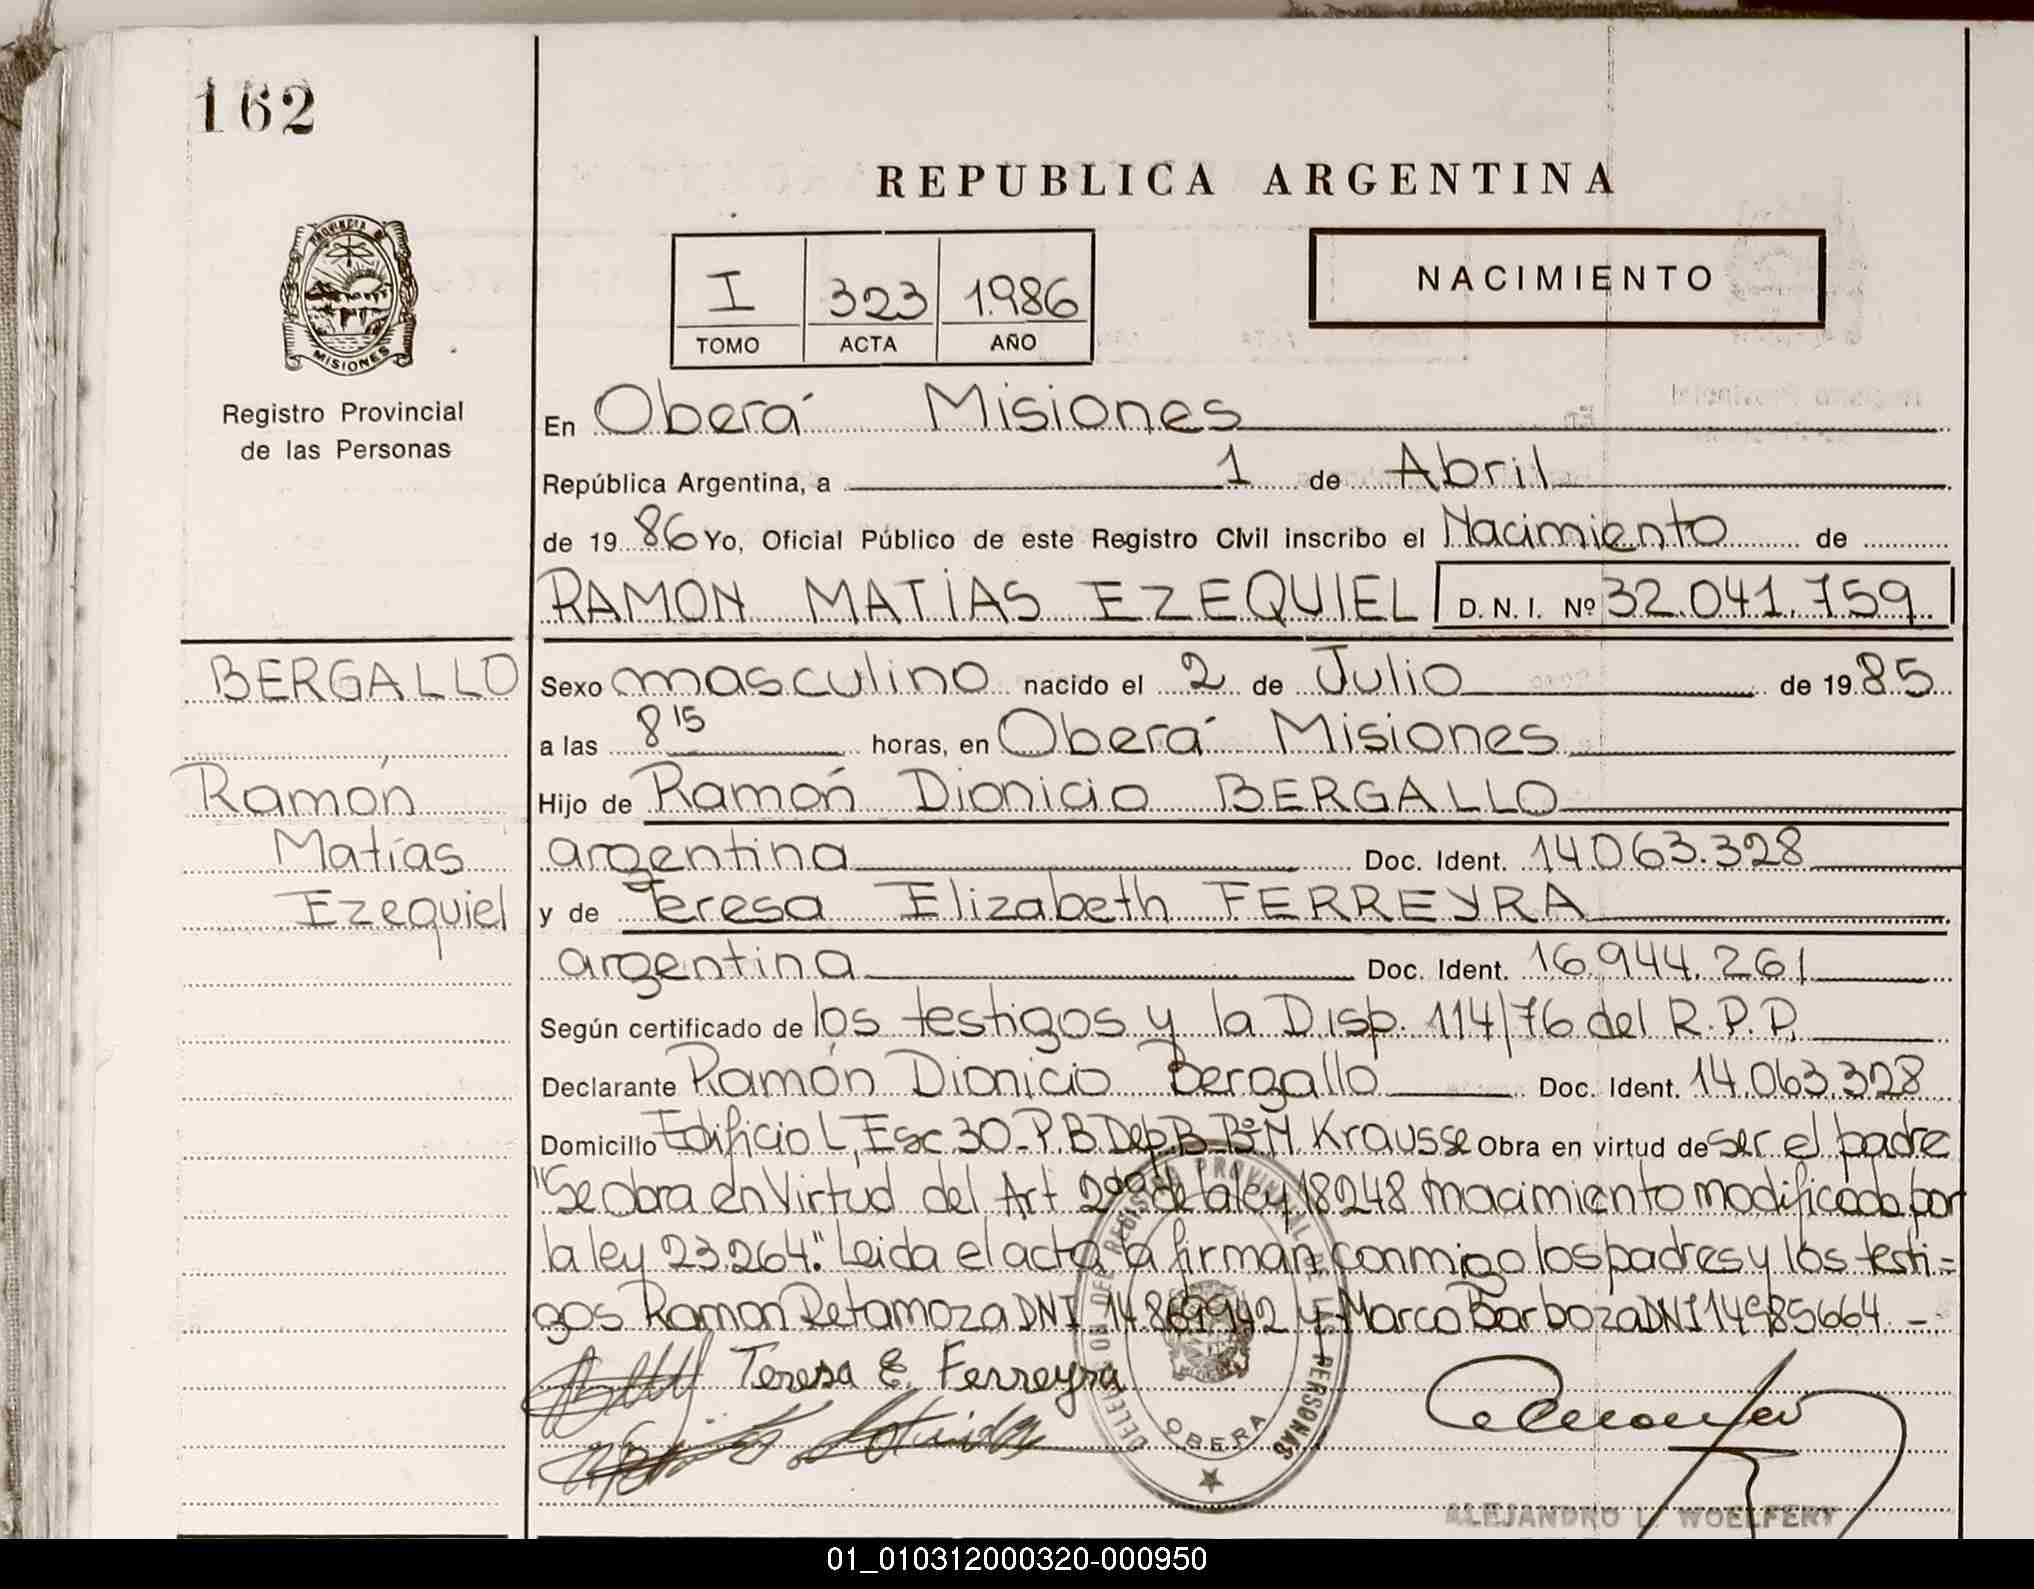 162
REPUBLICA ARGENTINA
PROVINCIA DE
MISIONES
Registro Provincial
de las Personas
I 323 1.986
TOMO ACTA AÑO
NACIMIENTO
En Oberá Misiones
República Argentina, a 1 de Abril
de 19 86 Yo, Oficial Público de este Registro Civil inscribo el Nacimiento de
RAMON MATIAS EZEQUIEL D. N. I. Nº 32.041.759
BERGALLO
Ramón
Matías
Ezequiel
Sexo masculino nacido el 2 de Julio de 19 85
a las 8 15 horas, en Oberá Misiones
Hijo de Ramón Dionicio BERGALLO
argentina Doc. Ident. 14.063.328
y de Teresa Elizabeth FERREYRA
argentina Doc. Ident. 16.944.261
Según certificado de los testigos y la Disp. 114/76 del R.P.P.
Declarante Ramón Dionicio Bergallo Doc. Ident. 14.063.328
Domicilio Edificio L, Esc 30-P.B. Dep. B Bº M. Krausse Obra en virtud de ser el padre
"Se obra en Virtud del Art 2do de la ley 18248 nacimiento modificado por
la ley 23.264." Leida el acta, la firman conmigo los padres y los testi=
gos Ramon Retamoza DNI 14.869942 y Marco Barboza DNI 14985664 -
Teresa E. Ferreyra
DELEGACION DEL REGISTRO PROVINCIAL DE LAS PERSONAS
OBERA
ALEJANDRO L. WOELFERT
01_010312000320-000950